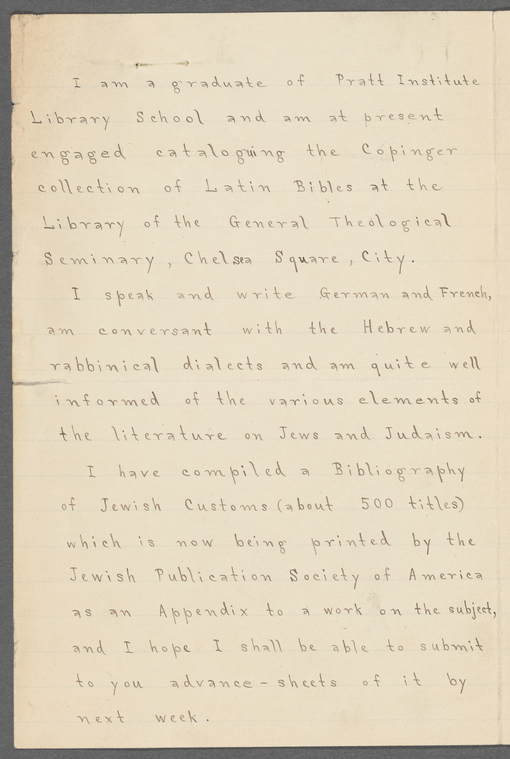 I am a graduate of Pratt Institute
Library School and am at present
engaged cataloguing the Copinger
collection of Latin Bibles at the
Library of the General Theological
Seminary, Chelsea Square, City.
I speak and write German and French,
am conversant with the Hebrew and
rabbinical dialects and am quite well
informed of the various elements of
the literature on Jews and Judaism.
I have compiled a Bibliography
of Jewish Customs (about 500 titles)
which is now being printed by the
Jewish Publication Society of America
as an Appendix to a work on the subject,
and I hope I shall be able to submit
to you advance-sheets of it by
next week.